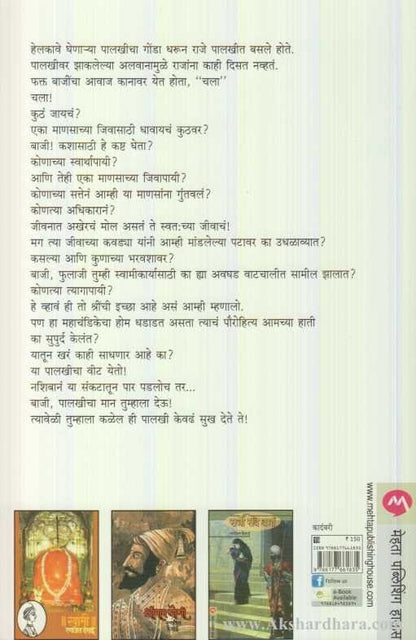 हेलकावे घेणाऱ्या पालखीचा गोंडा धरून राजे पालखीत बसले होते.
पालखीवर झाकलेल्या अलवानामुळे राजांना काही दिसत नव्हतं.
फक्त बाजींचा आवाज कानावर येत होता, ‘‘चला’’
चला!
कुठं जायचं?
एका माणसाच्या जिवासाठी धावायचं कुठवर?
बाजी! कशासाठी हे कष्ट घेता?
कोणाच्या स्वार्थापायी?
आणि तेही एका माणसाच्या जिवापायी?
कोणाच्या सत्तेनं आम्ही या माणसांना गुंतवलं?
कोणत्या अधिकारानं?
जीवनात अखेरचं मोल असतं ते स्वत:च्या जीवाचं!
मग त्या जीवाच्या कवड्या यांनी आम्ही मांडलेल्या पटावर का उधळाव्यात?
कसल्या आणि कुणाच्या भरवशावर?
बाजी, फुलाजी तुम्ही स्वामीकार्यासाठी का ह्या अवघड वाटचालीत सामील झालात?
कोणत्या त्यागापायी?
हे व्हावं ही तो श्रींची इच्छा आहे असं आम्ही म्हणालो.
पण हा महाचंडिकेचा होम धडाडत असता त्याचं पौरोहित्य आमच्या हाती
का सुपुर्द केलंत?
यातून खरं काही साधणार आहे का?
या पालखीचा वीट येतो!
नशिबानं या संकटातून पार पडलोच तर...
बाजी, पालखीचा मान तुम्हाला देऊ!
त्यावेळी तुम्हाला कळेल ही पालखी केवढं सुख देते ते!
www.mehtapublishinghouse.com
मेहता पब्लिशिंग
कादंबरी
₹ 150
Follow us
e-Book
Available
स्वामी
श्रीमान योगी
www.Akshardhara.com